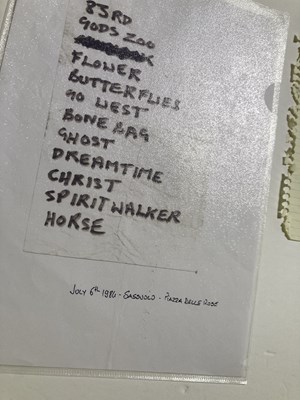 83RD
GODS ZOO
FLOWER
BUTTERFLIES
GO WEST
BONE BAG
GHOST
DREAMTIME
CHRIST
SPIRITWALKER
HORSE
JULY 6TH 1984 - SASSUOLO - PIAZZA DELLE ROSE